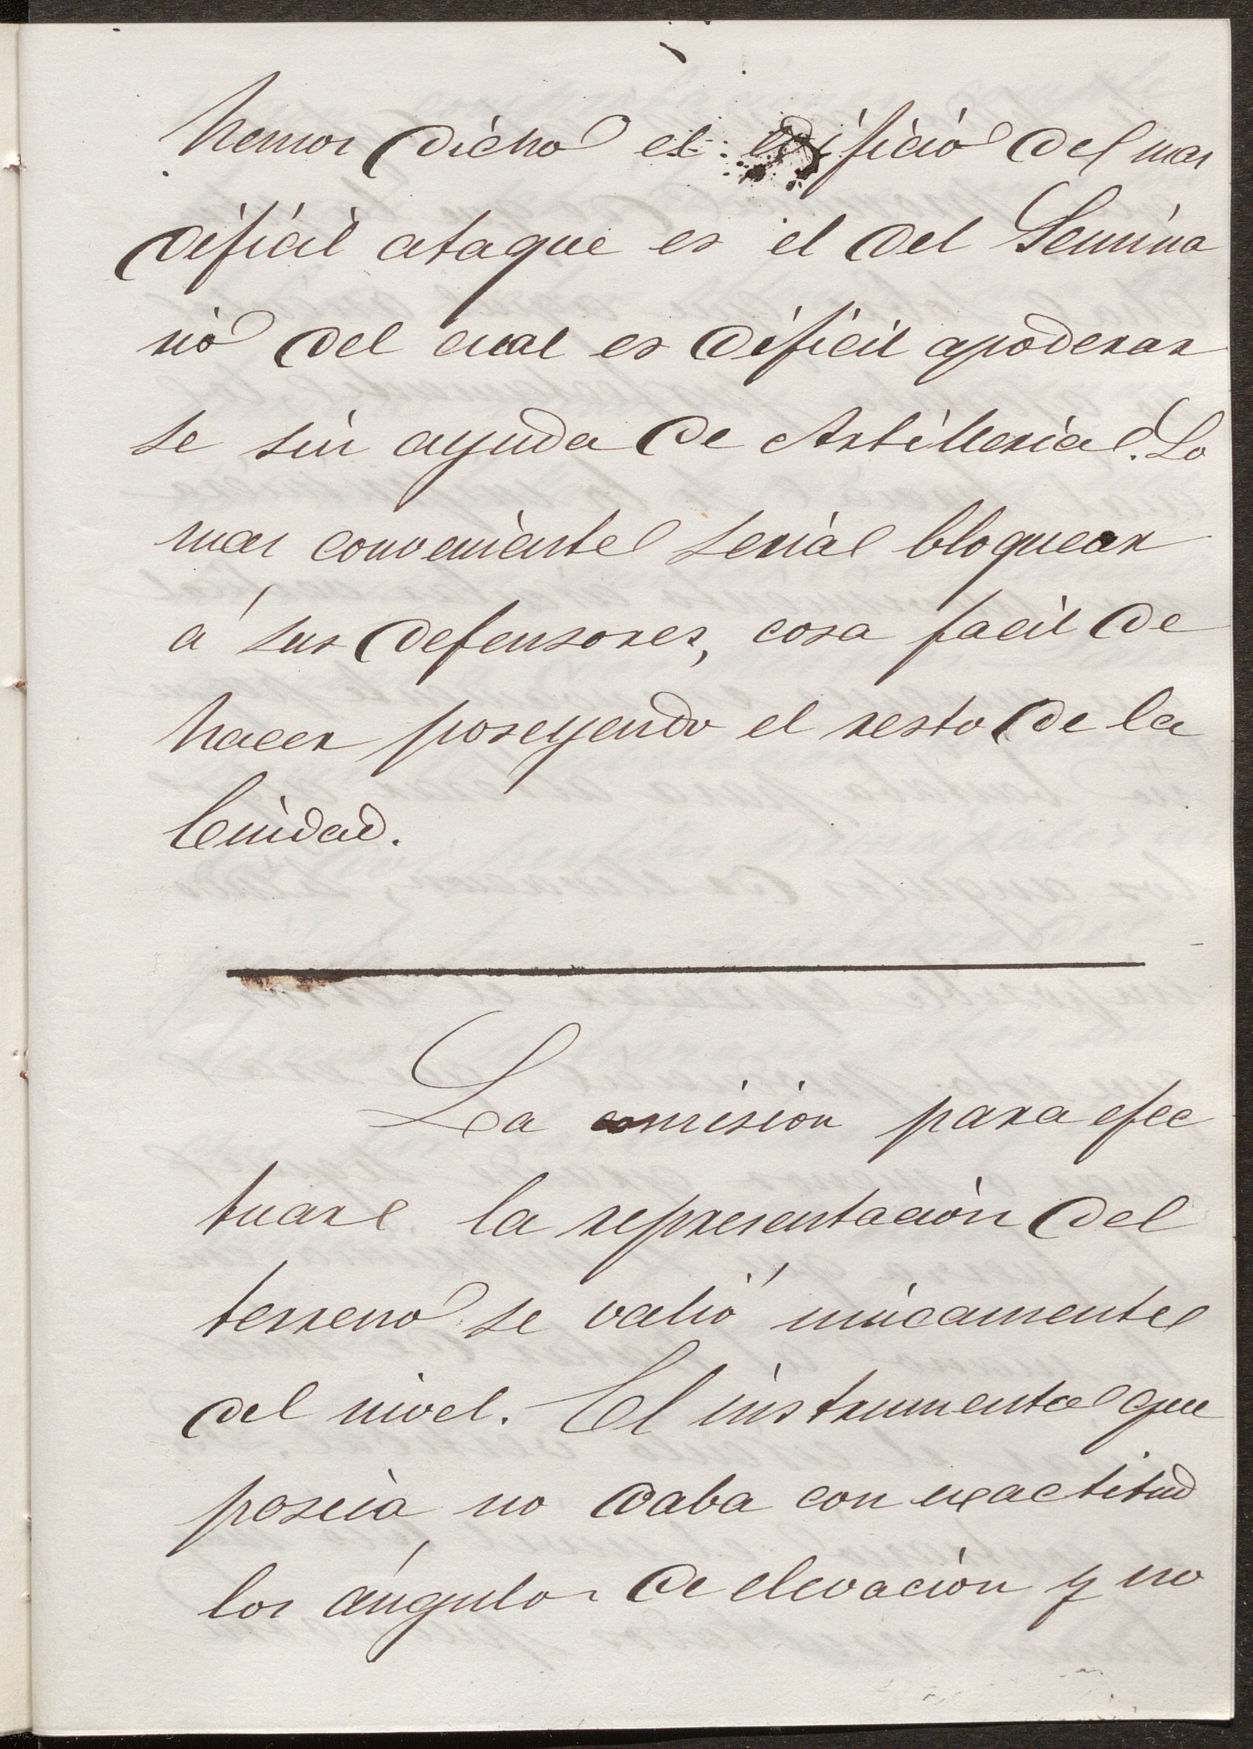 hemos dicho el edificio del mas
dificil ataque es el del Semina
rio del cual es dificil apoderar
se sin ayuda de Artilleria. Lo
mas conveniente seria bloquear
á sus defensores, cosa facil de
hacer poseyendo el resto de la
Ciudad.
La comision para efec
tuar la representación del
terreno se valió unicamente
del nivel. El instrumento que
poseia no daba con exactitud
los ángulos de elevación y no